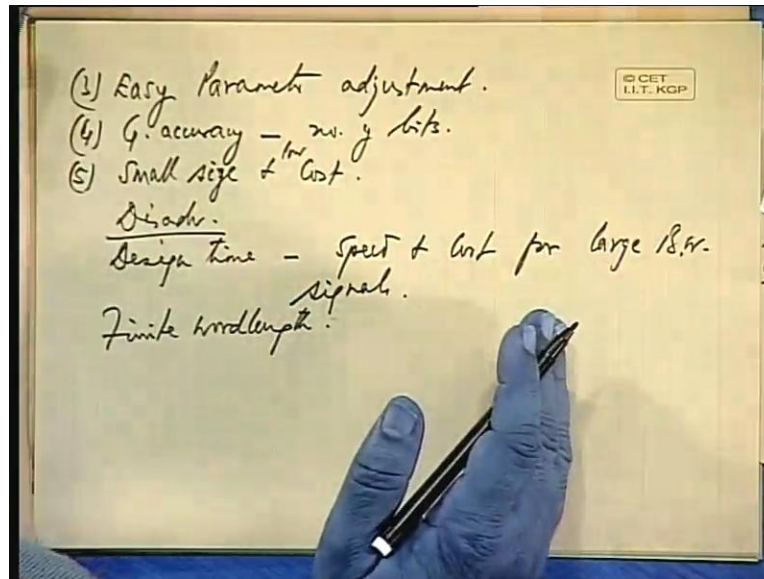 (3) Easy Parameter adjustment.
(4) G. accuracy — no. of bits.
(5) Small size & low Cost.
Disadv.
Design time — Speed & Cost for large B.W.
signals.
Finite wordlength.
© CET
I.I.T. KGP